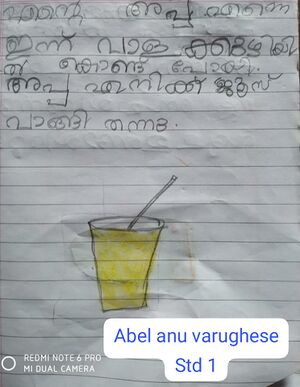 എന്റെ അപ്പ എന്നെ
ഇന്ന് പാള
കൊണ്ട് പോയി.
അപ്പ എനിക്ക് ജൂസ്
വാങ്ങി തന്നു.
Abel anu varughese
Std 1
REDMI NOTE 6 PRO
MI DUAL CAMERA